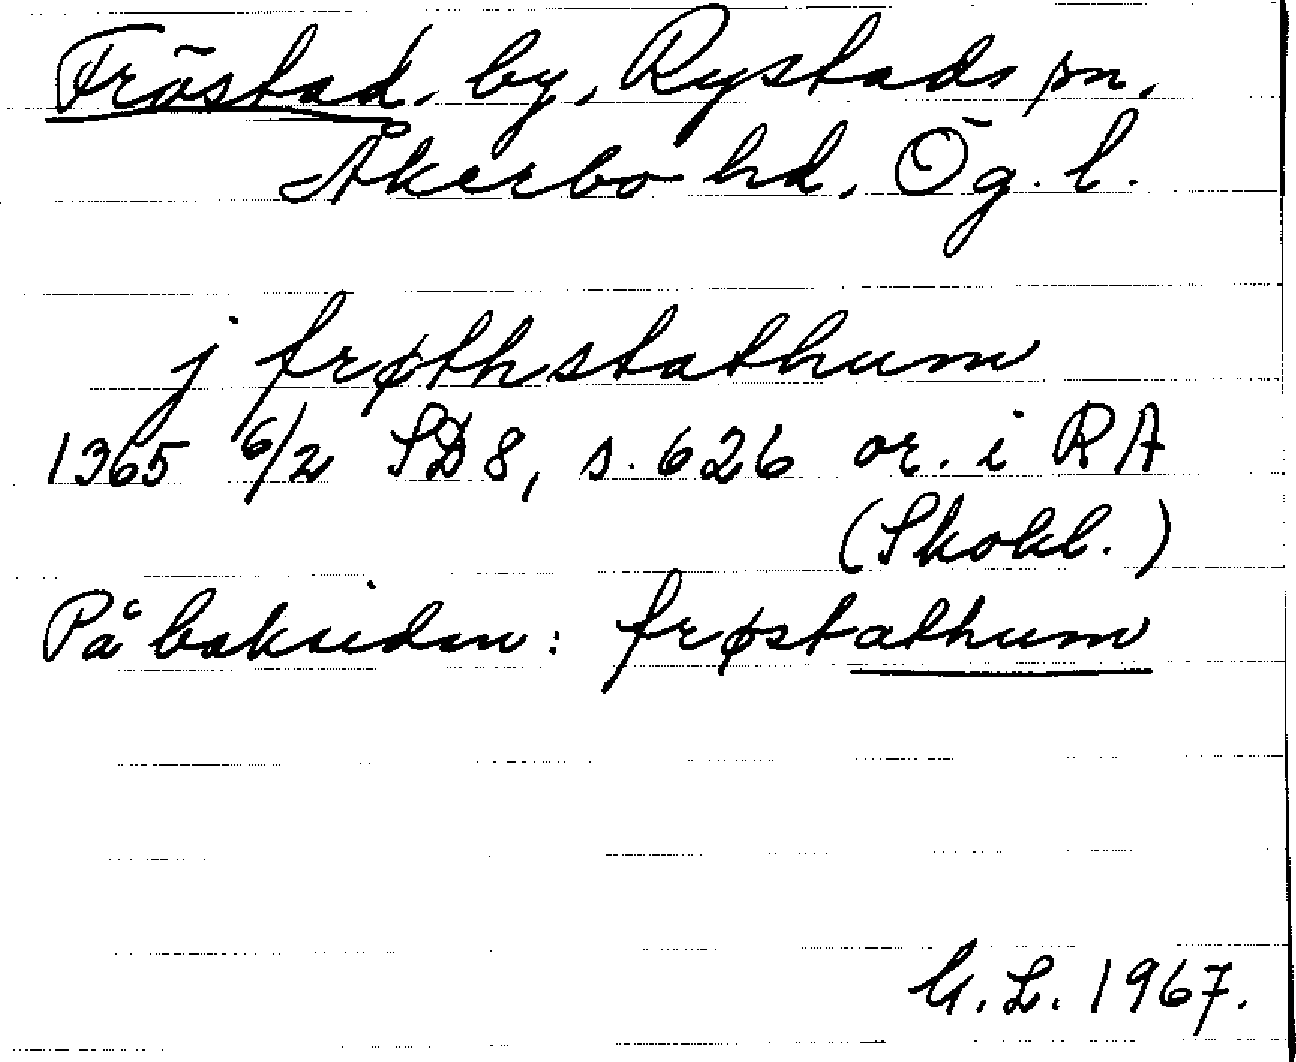 Fröstad, by, Rystads sn,
Åkerbo hd, Ög. l.
j frøthstathum
1365 6/2 SD 8, s. 626 or. i RA
(Skokl.)
På baksidan: frøstathum
G.L. 1967.